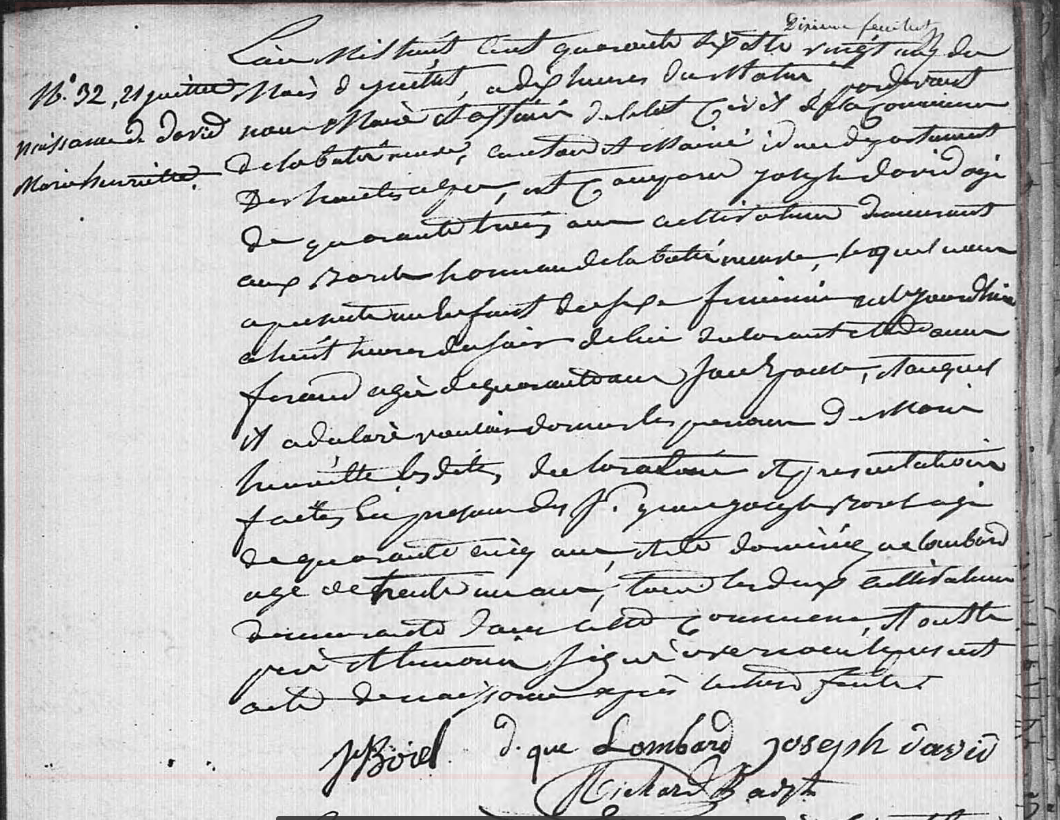 Dixieme feuillet
L'an mil huit cent quarante sept le vingt un du
N° 32, 21 juillet
naissance de david
Marie henriette
mois de juillet, a dix heures du matin, par devant
nous Maire et officier de l'etat Civil de la Commune
de la batie neuve, canton et Mairie idem departement
Des hautes alpes, est Comparu joseph david agé
de quarante trois ans cultivateur demeurant
aux Borels hameau de la batie neuve, lequel nous
a presenté un Enfant de sexe feminin né
a huit heures du soir de lui declarant et de
ferand agée de quarante ans son Epouse, et auquel
il a declaré vouloir donner les prenoms de Marie
henriette lesdites declaration et presentation
faites En presence des Srs joseph Borel agé
de quarante cinq ans, et de dominique lombard
agé de trente un ans, tous les deux cultivateurs
demeurants dans cette Commune, et ont le
pere et temoins signé avec nous le present
acte de naissance après lecture faite.
J Borel d. que Lombard joseph david
Richard Bapt